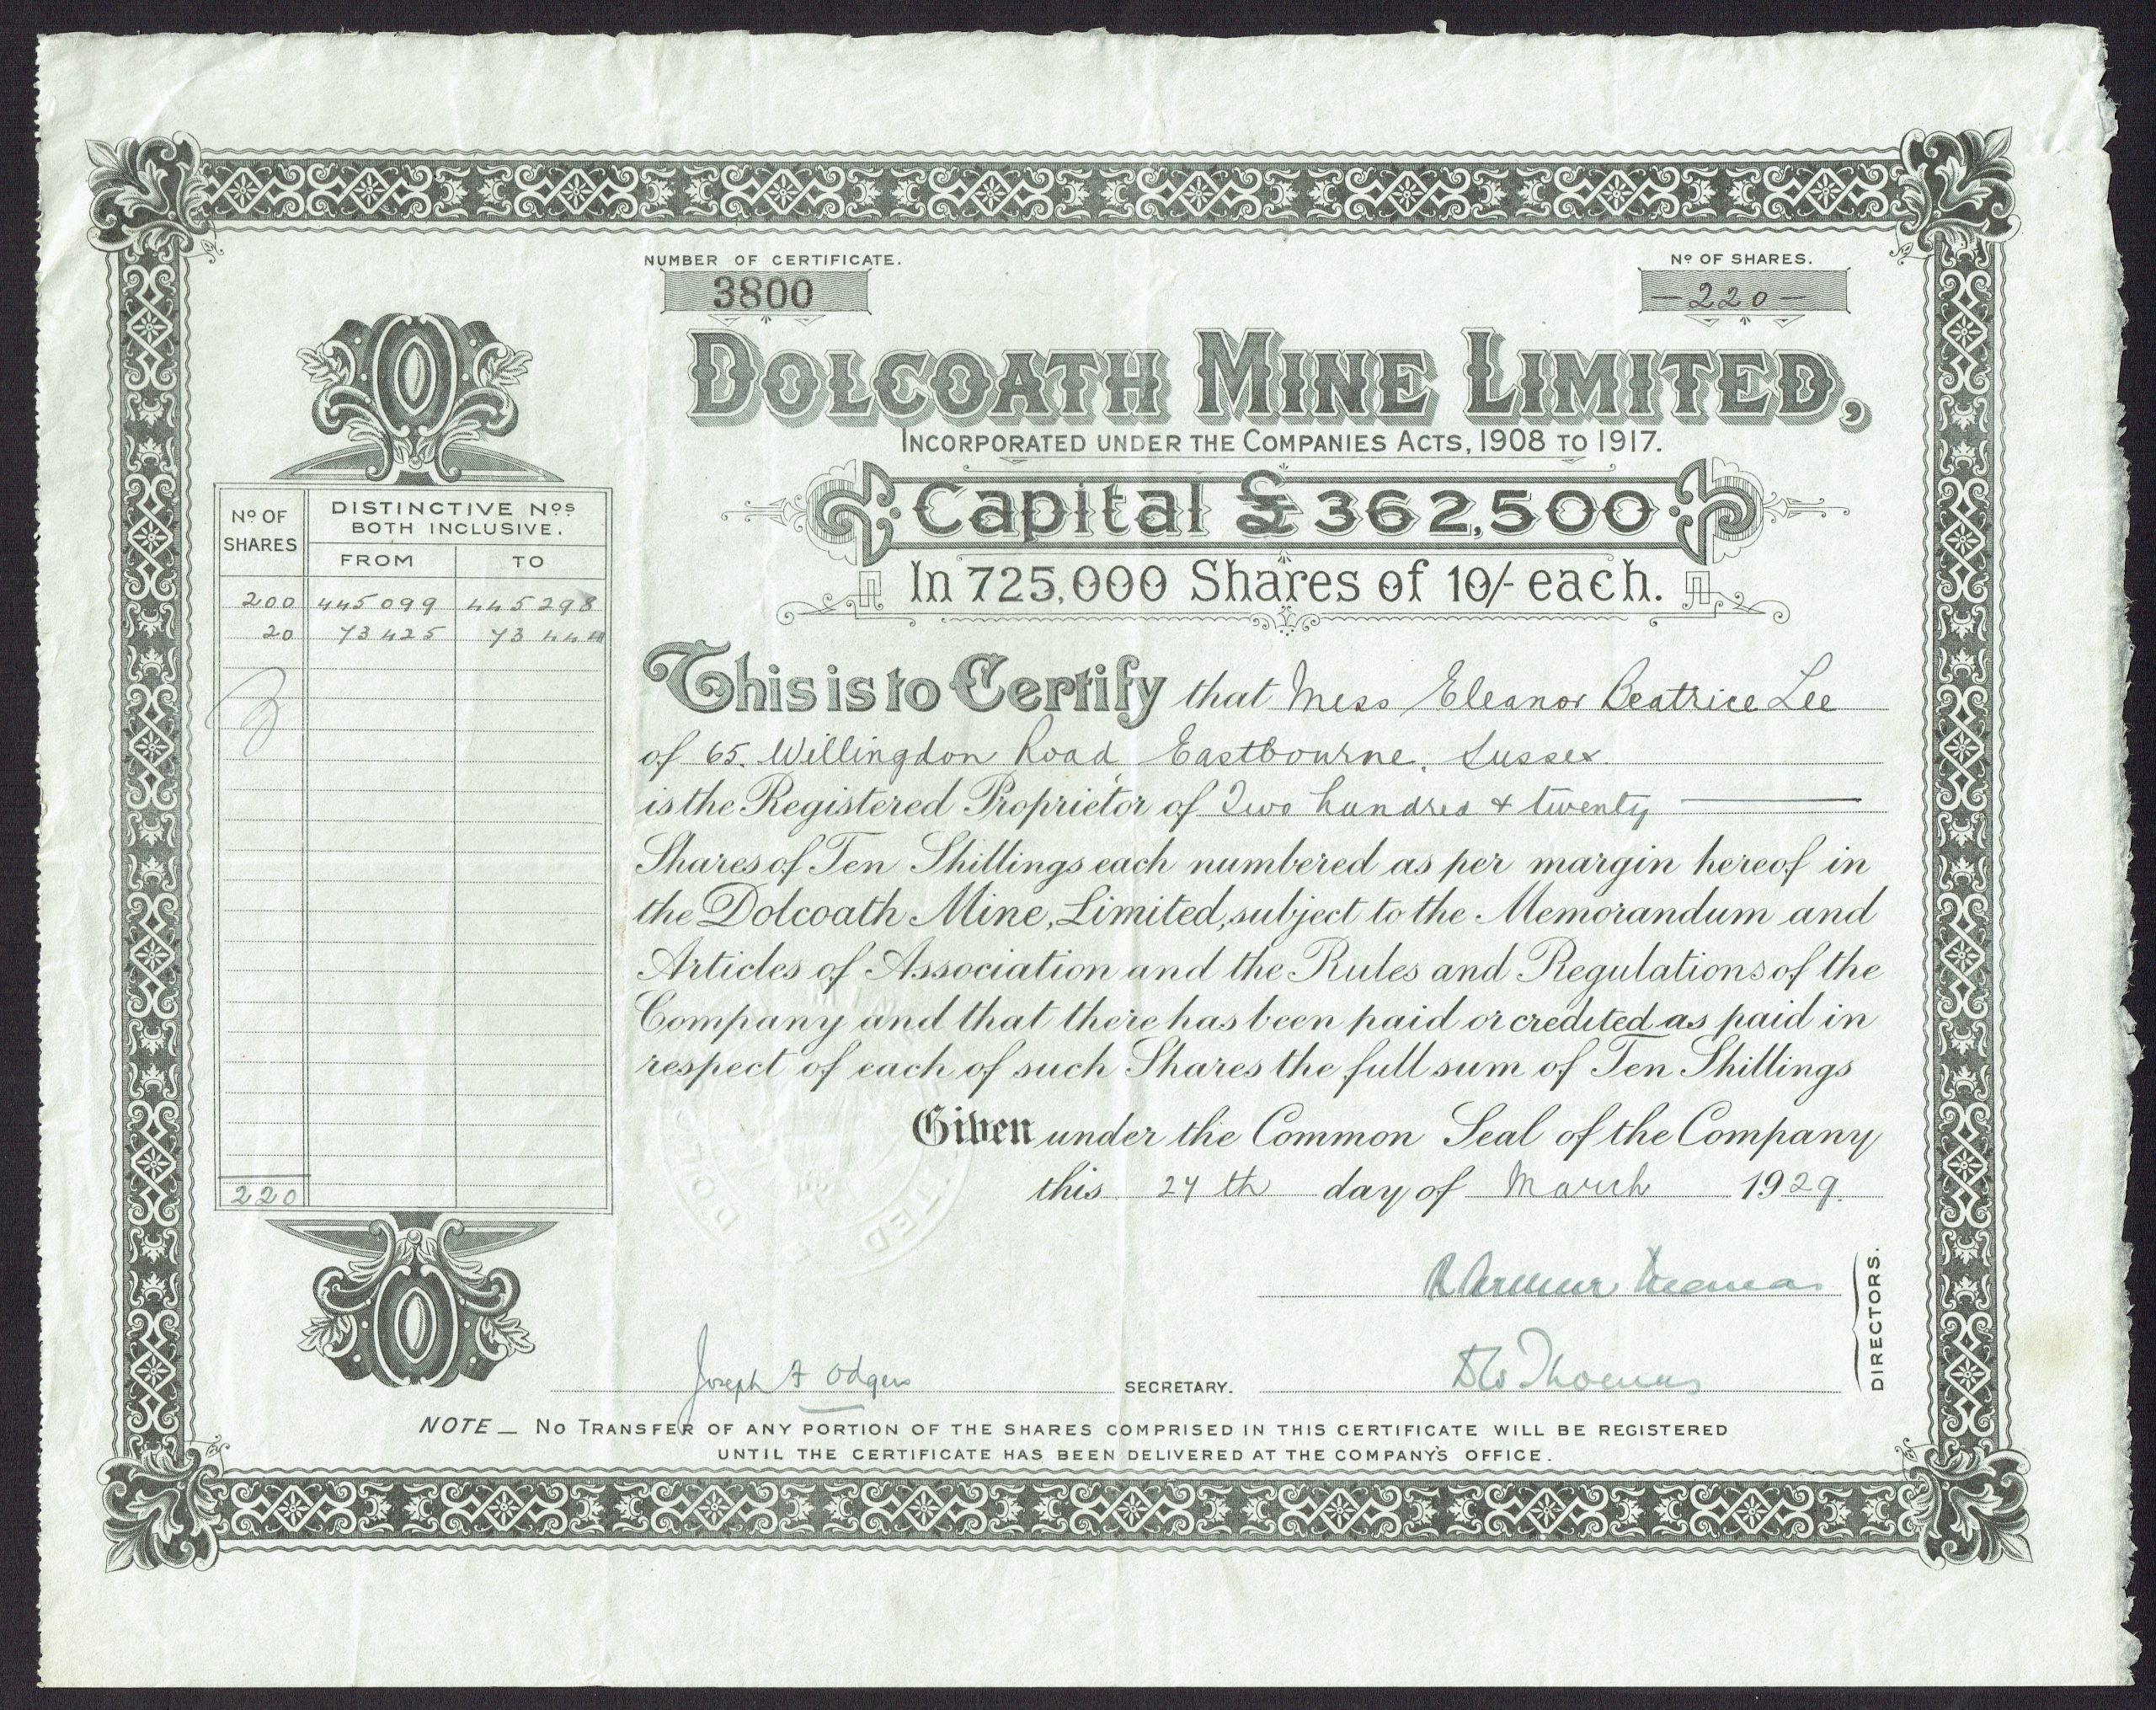 NUMBER OF CERTIFICATE.
3800
No OF SHARES.
— 220 —
DOLCOATH MINE LIMITED,
INCORPORATED UNDER THE COMPANIES ACTS, 1908 TO 1917.
Capital £362,500
In 725,000 Shares of 10/- each.
No OF SHARES
DISTINCTIVE Nos BOTH INCLUSIVE.
FROM TO
200 445099 445298
20 73425 73444
220
This is to Certify that Miss Eleanor Beatrice Lee
of 65. Willingdon Road, Eastbourne, Sussex.
is the Registered Proprietor of Two hundred & twenty
Shares of Ten Shillings each numbered as per margin hereof in
the Dolcoath Mine, Limited, subject to the Memorandum and
Articles of Association and the Rules and Regulations of the
Company and that there has been paid or credited as paid in
respect of each of such Shares the full sum of Ten Shillings
Given under the Common Seal of the Company
this 24th day of March 1929.
R Arthur Thomas
Thomas
DIRECTORS.
Joseph F Odgers
SECRETARY.
NOTE — NO TRANSFER OF ANY PORTION OF THE SHARES COMPRISED IN THIS CERTIFICATE WILL BE REGISTERED
UNTIL THE CERTIFICATE HAS BEEN DELIVERED AT THE COMPANY'S OFFICE.